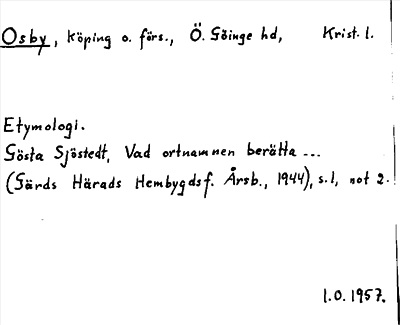 Osby, köping o. förs., Ö. Göinge hd, Krist. l.
Etymologi.
Gösta Sjöstedt, Vad ortnamnen berätta ...
(Gärds Härads Hembygdsf. Årsb., 1944), s. 1, not 2.
l.O. 1957.